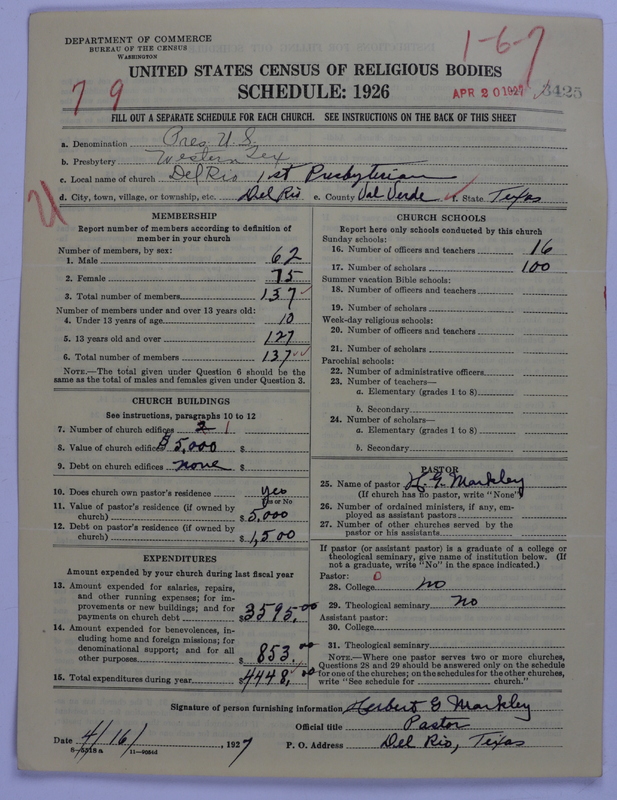 DEPARTMENT OF COMMERCE
BUREAU OF THE CENSUS
WASHINGTON
1-6-7
UNITED STATES CENSUS OF RELIGIOUS BODIES
7 9
SCHEDULE: 1926
APR 20 1927
FILL OUT A SEPARATE SCHEDULE FOR EACH CHURCH. SEE INSTRUCTIONS ON THE BACK OF THIS SHEET
a. Denomination Pres. U.S.
b. Presbytery Western Tex
c. Local name of church Del Rio 1st Presbyterian
d. City, town, village, or township, etc. Del Rio e. County Val Verde f. State Texas
MEMBERSHIP
Report number of members according to definition of
member in your church
Number of members, by sex:
1. Male 62
2. Female 75
3. Total number of members 137
Number of members under and over 13 years old:
4. Under 13 years of age 10
5. 13 years old and over 127
6. Total number of members 137
NOTE.—The total given under Question 6 should be the
same as the total of males and females given under Question 3.
CHURCH BUILDINGS
See instructions, paragraphs 10 to 12
7. Number of church edifices 2 1
8. Value of church edifices $5,000 $
9. Debt on church edifices none $
10. Does church own pastor's residence yes
Yes or No
11. Value of pastor's residence (if owned by
church) $5,000
12. Debt on pastor's residence (if owned by
church) $1,500
EXPENDITURES
Amount expended by your church during last fiscal year
13. Amount expended for salaries, repairs,
and other running expenses; for im-
provements or new buildings; and for
payments on church debt $3595.00
14. Amount expended for benevolences, in-
cluding home and foreign missions; for
denominational support; and for all
other purposes $853.00
15. Total expenditures during year $4448.00
CHURCH SCHOOLS
Report here only schools conducted by this church
Sunday schools:
16. Number of officers and teachers 16
17. Number of scholars 100
Summer vacation Bible schools:
18. Number of officers and teachers
19. Number of scholars
Week-day religious schools:
20. Number of officers and teachers
21. Number of scholars
Parochial schools:
22. Number of administrative officers
23. Number of teachers—
a. Elementary (grades 1 to 8)
b. Secondary
24. Number of scholars—
a. Elementary (grades 1 to 8)
b. Secondary
PASTOR
25. Name of pastor H. G. Markley
(If church has no pastor, write "None")
26. Number of ordained ministers, if any, em-
ployed as assistant pastors
27. Number of other churches served by the
pastor or his assistants
If pastor (or assistant pastor) is a graduate of a college or
theological seminary, give name of institution below. (If
not a graduate, write "No" in the space indicated.)
Pastor: 0
28. College no
29. Theological seminary no
Assistant pastor:
30. College
31. Theological seminary
NOTE.—Where one pastor serves two or more churches,
Questions 28 and 29 should be answered only on the schedule
for one of the churches; on the schedules for the other churches,
write "See schedule for church."
Signature of person furnishing information Herbert G Markley
Official title Pastor
Date 4/16/, 1927 P. O. Address Del Rio, Texas